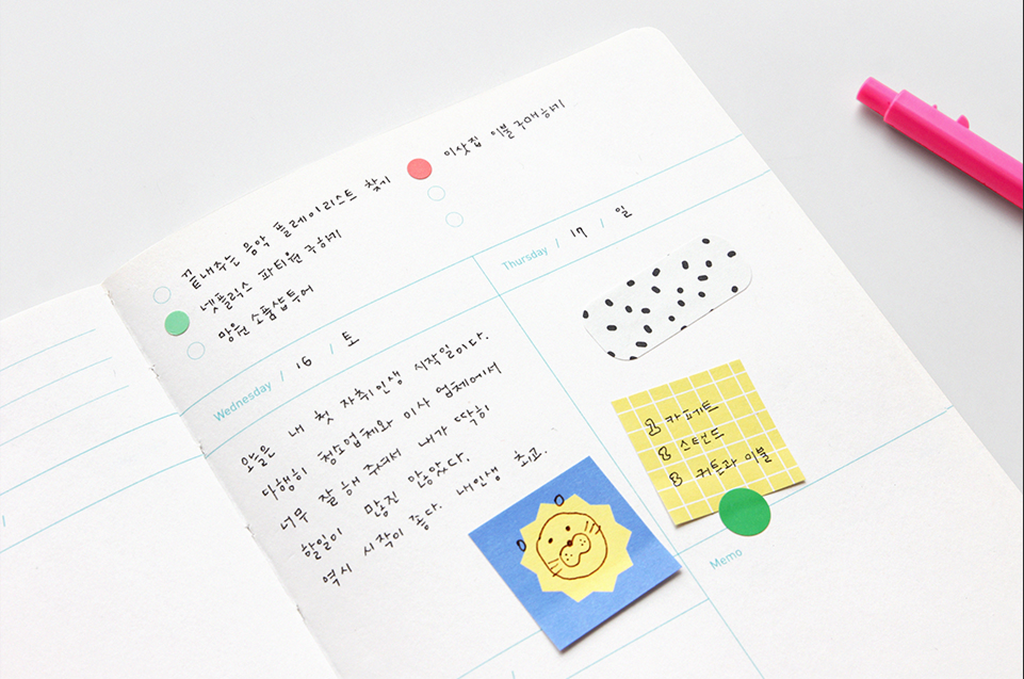 끝내주는 음악 플레이리스트 찾기
넷플릭스 파티원 구하기
망원 소품샵 투어
이삿짐 이불 구매하기
Wednesday / 16 / 토
오늘은 내 첫 자취인생 시작일이다.
다행히 청소업체와 이사 업체에서
너무 잘 해 주셔서 내가 딱히
할일이 많진 않았다.
역시 시작이 좋다. 내인생 최고.
Thursday / 17 / 일
1 카페트
2 스탠드
3 커튼과 이불
Memo